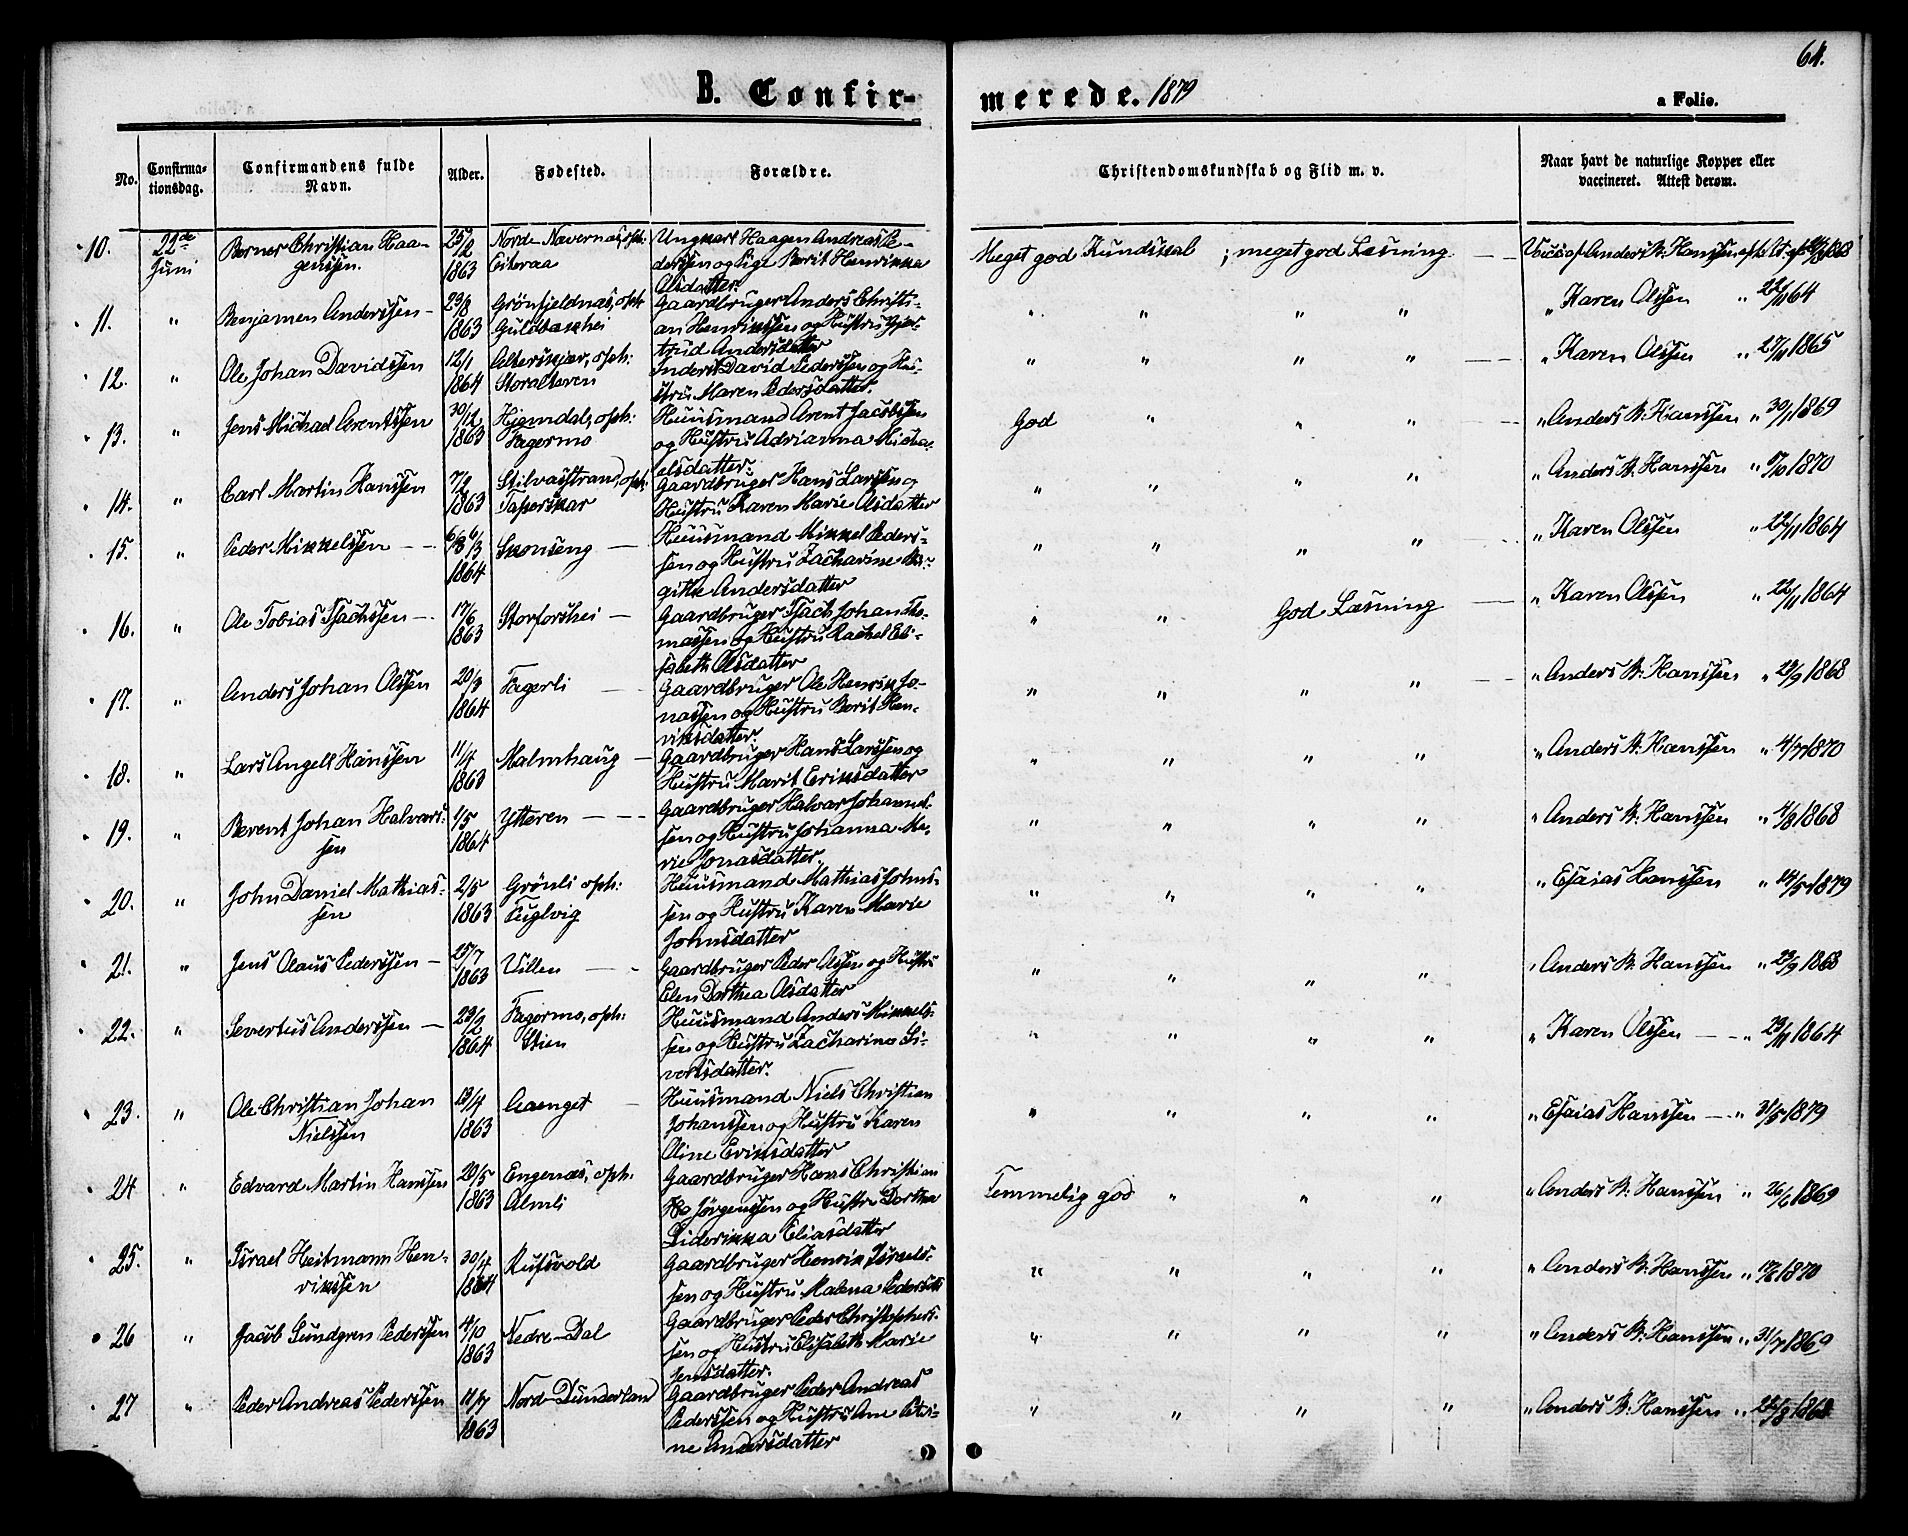 64.
B. Confir-
merede. 1879
a Folio.
No.
Confirma-
tionsdag.
Confirmandens fulde
Navn.
Alder.
Fødested.
Forældre.
Christendomskundskab og Flid m. v.
Naar havt de naturlige Kopper eller
vaccineret. Attest derom.
10. 22de Juni
Berner Christian Haa-
gensen.
1863
Ungkarl Haagen Andreas Pe-
derssen og Pige Berit Henrikka
Olsdatter.
Meget god Kundskab ; meget god Læsning
Anders B. Hanssen 1868
11. "
Benjamen Anderssen
29/8
1863
Grønfjeldnæs, oph:
Guldbakhei
Gaardbruger Anders Christi-
an Henrikssen og Hustru Gjer-
trud Andersdatter
" " " "
" Karen Olssen " 22/11 64
12. "
Ole Johan Davidssen
12/1
1864
Alterskjær, oph:
Storalteren
Inderst David Pederssen og Hu-
stru Maren Pedersdatter.
" " " "
" Karen Olssen " 1865
13. "
Jens Michael Arentssen
30/12
1863
Hjemdal, oph:
Fagermo
Huusmand Arent Jacobssen
og Hustru Adrianna Micha-
elsdatter.
God " " "
" Anders B. Hanssen " 1869
14. "
Carl Martin Hanssen
7/2
1863
Stilvasstrand, oph:
Gaardbruger Hans Larssen og
Hustru Karen Marie Olsdatter
" " " "
" Anders B. Hanssen " 1870
15. "
Peder Mikkelssen
1864
Skonseng
Huusmand Mikkel Peders-
sen og Hustru Zacharine Bir-
gitte Andersdatter
" " " "
" Karen Olssen " 22/11 1864
16. "
Ole Tobias Isachssen
17/6
1863
Storforshei
Gaardbruger Isach Johan Tho-
massen og Hustru Rachel Eli-
sabeth Olsdatter
" " God Læsning
" Karen Olssen " 22/11 1864
17. "
Anders Johan Olssen
20/3
1864
Fagerli
Gaardbruger Ole Henrik Jo-
nassen og Hustru Berit Hen-
riksdatter.
" " " "
" Anders B. Hanssen " 29/9 1868
18. "
Lars Angell Hanssen
11/4
1863
Malmhaug
Gaardbruger Hans Larssen og
Hustru Marit Eriksdatter
" " " "
" Anders B. Hanssen " 4/7 1870
19. "
Berent Johan Halvars-
sen
1/5
1864
Ytteren
Gaardbruger Halvar Johanns-
sen og Hustru Johanna Ma-
rie Jonasdatter.
" " " "
" Anders B. Hanssen " 4/8 1868
20. "
John Daniel Mathias-
sen
2/5
1863
Grønli oph:
Fuglvig
Huusmand Mathias Johns-
sen og Hustru Karen Marie
Johnsdatter
" " " "
" Esaias Hanssen " 14/5 1879
21. "
Jens Olaus Pederssen
25/7
1863
Villen
Gaardbruger Peder Olssen og Hustru
Elen Dorthea Olsdatter
" " "
" Anders B. Hanssen " 29/9 1868
22. "
Severtus Anderssen
29/2
1864
Fagermo, oph:
Stien
Huusmand Anders Mikkels-
sen og Hustru Zacharina Si-
vertsdatter.
" " " "
" Karen Olssen " 29/11 1864
23. "
Ole Christian Johan
Nielssen
13/4
1863
Aaenget
Huusmand Niels Christian
Johanssen og Hustru Karen
Oline Eriksdatter
" " " "
" Esaias Hanssen " 31/5 1879
24 "
Edvard Martin Hanssen
20/5
1863
Engenæs, oph:
Almli
Gaardbruger Hans Christian
Jørgenssen og Hustru Dorthea
Diderikka Eliasdatter
Temmelig god " " "
" Anders B. Hanssen " 26/6 1869
25. "
Israel Heitmann Hen-
rikssen
30/4
1864
Rufsvold
Gaardbruger Henrik Israels-
sen og Hustru Malena Pedersdtr
" " " "
" Anders B. Hanssen " 1870
26 "
Jacob Lundgren Pederssen
4/10
1863
Nedre-Dal
Gaardbruger Peder Christophers-
sen og Hustru Elisabeth Marie
Jensdatter.
" " " "
" Anders B. Hanssen " 31/7 1869
27 "
Peder Andreas Pederssen
11/7
1863
Nord-Dunderland
Gaardbruger Peder Andreas
Pederssen og Hustru Ane Petri-
ne Andersdatter
" " " "
" Anders B. Hanssen " 1868